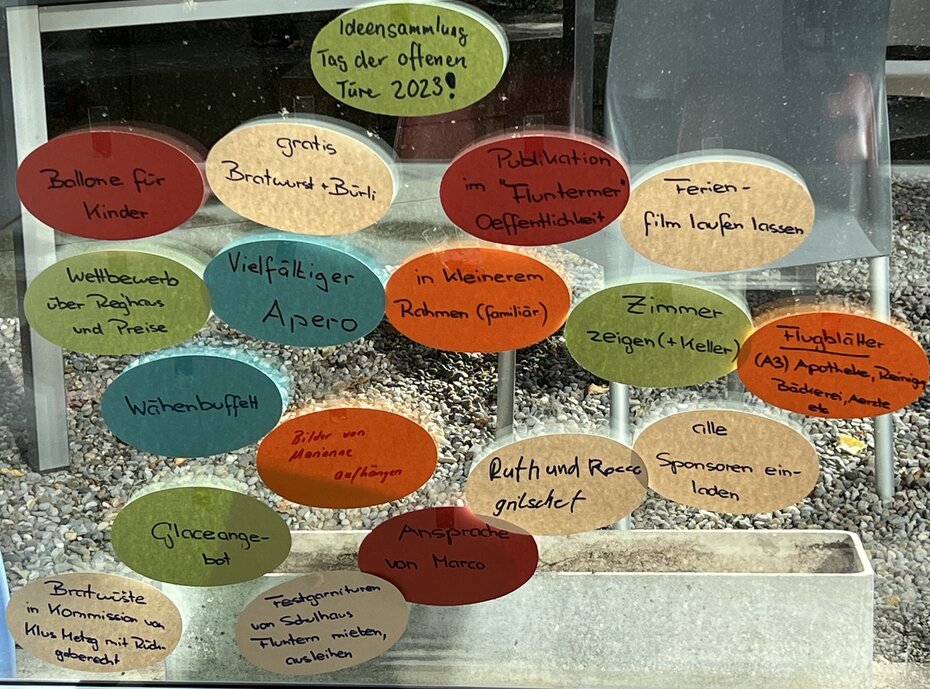 Ideensammlung
Tag der offenen
Türe 2023!
Ballone für
Kinder
gratis
Bratwurst + Bürli
Publikation
im "Fluntermer"
Oeffentlichkeit
Ferien-
film laufen lassen
Wettbewerb
über Reghaus
und Preise
Vielfältiger
Apero
in kleinerem
Rahmen (familiär)
Zimmer
zeigen (+ Keller)
Flugblätter
(A3) Apotheke, Reinig,
Bäckerei, Aerzte
etc
Wähenbuffett
Bilder von
Marianne
aufhängen
Ruth und Rocco
grilschet
alle
Sponsoren ein-
laden
Glaceange-
bot
Ansprache
von Marco
Bratwüste
in Kommission von
Klus Metzg mit Rück-
gaberecht
Festgarnituren
von Schulhaus
Fluntern mieten,
ausleihen